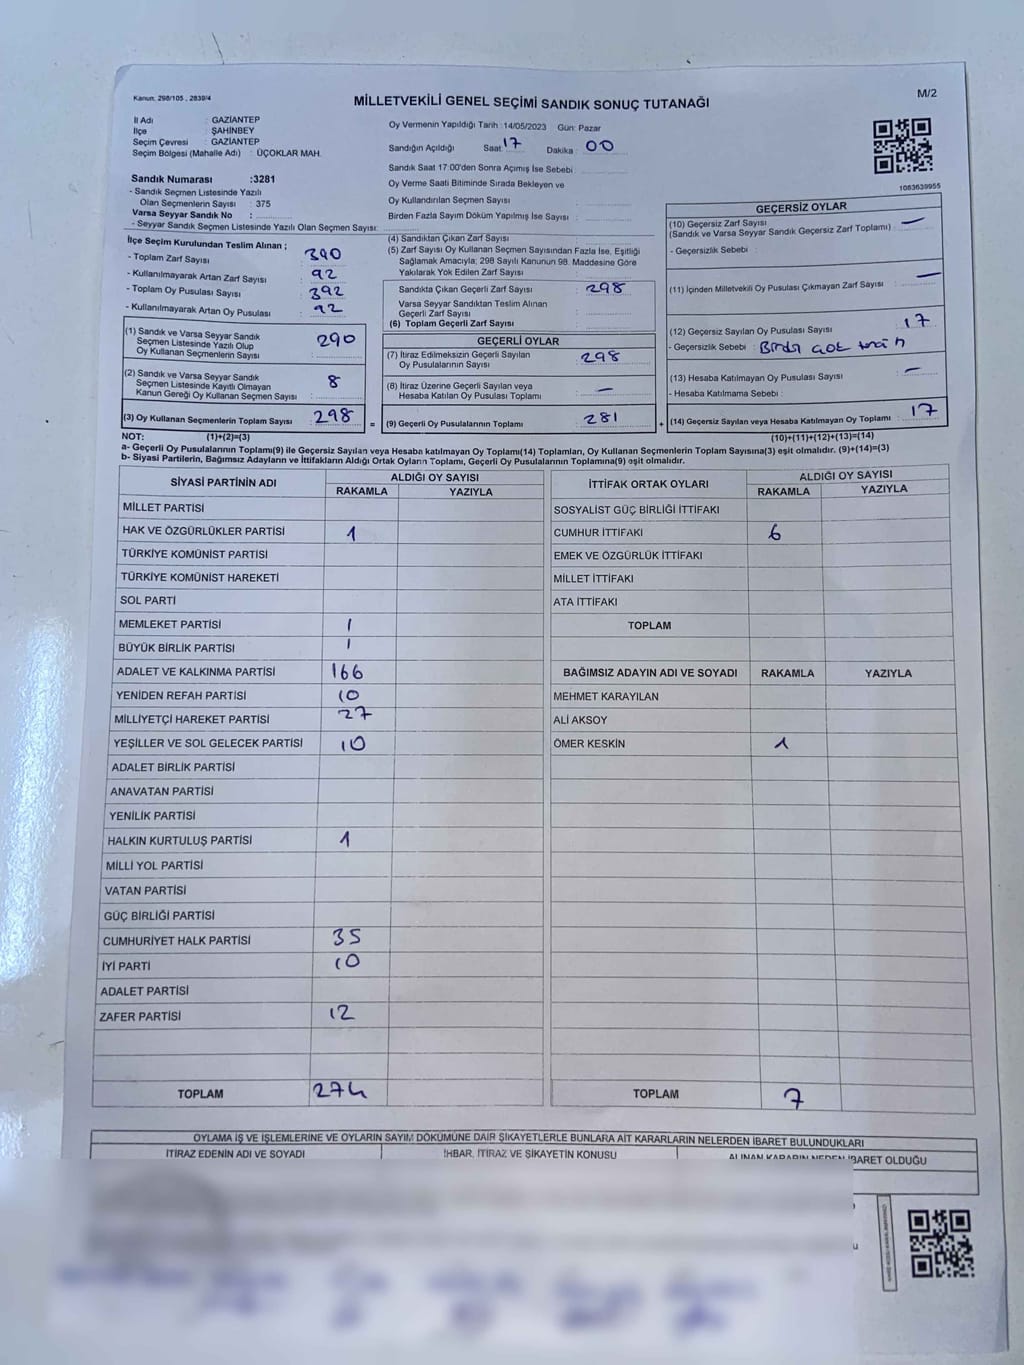 Kanun: 298/105 , 2839/4
MİLLETVEKİLİ GENEL SEÇİMİ SANDIK SONUÇ TUTANAĞI
M/2
İl Adı : GAZİANTEP
İlçe : ŞAHİNBEY
Seçim Çevresi : GAZİANTEP
Seçim Bölgesi (Mahalle Adı) : ÜÇOKLAR MAH.
Sandık Numarası :3281
- Sandık Seçmen Listesinde Yazılı
Olan Seçmenlerin Sayısı : 375
Varsa Seyyar Sandık No :
- Seyyar Sandık Seçmen Listesinde Yazılı Olan Seçmen Sayısı:
Oy Vermenin Yapıldığı Tarih : 14/05/2023 Gün: Pazar
Sandığın Açıldığı Saat : 17 Dakika : 00
Sandık Saat 17:00'den Sonra Açımış İse Sebebi :
Oy Verme Saati Bitiminde Sırada Bekleyen ve
Oy Kullandırılan Seçmen Sayısı :
Birden Fazla Sayım Döküm Yapılmış İse Sayısı :
1083639955
İlçe Seçim Kurulundan Teslim Alınan ;
- Toplam Zarf Sayısı : 390
- Kullanılmayarak Artan Zarf Sayısı : 92
- Toplam Oy Pusulası Sayısı : 392
- Kullanılmayarak Artan Oy Pusulası : 92
(1) Sandık ve Varsa Seyyar Sandık
Seçmen Listesinde Yazılı Olup
Oy Kullanan Seçmenlerin Sayısı : 290
(2) Sandık ve Varsa Seyyar Sandık
Seçmen Listesinde Kayıtlı Olmayan
Kanun Gereği Oy Kullanan Seçmen Sayısı : 8
(3) Oy Kullanan Seçmenlerin Toplam Sayısı : 298
(4) Sandıktan Çıkan Zarf Sayısı :
(5) Zarf Sayısı Oy Kullanan Seçmen Sayısından Fazla İse, Eşitliği
Sağlamak Amacıyla; 298 Sayılı Kanunun 98. Maddesine Göre
Yakılarak Yok Edilen Zarf Sayısı :
Sandıkta Çıkan Geçerli Zarf Sayısı : 298
Varsa Seyyar Sandıktan Teslim Alınan
Geçerli Zarf Sayısı :
(6) Toplam Geçerli Zarf Sayısı :
GEÇERLİ OYLAR
(7) İtiraz Edilmeksizin Geçerli Sayılan
Oy Pusulalarının Sayısı : 298
(8) İtiraz Üzerine Geçerli Sayılan veya
Hesaba Katılan Oy Pusulası Toplamı : —
= (9) Geçerli Oy Pusulalarının Toplamı : 281
GEÇERSİZ OYLAR
(10) Geçersiz Zarf Sayısı : —
(Sandık ve Varsa Seyyar Sandık Geçersiz Zarf Toplamı)
- Geçersizlik Sebebi :
(11) İçinden Milletvekili Oy Pusulası Çıkmayan Zarf Sayısı : —
(12) Geçersiz Sayılan Oy Pusulası Sayısı : 17
- Geçersizlik Sebebi :
(13) Hesaba Katılmayan Oy Pusulası Sayısı : —
- Hesaba Katılmama Sebebi :
+ (14) Geçersiz Sayılan veya Hesaba Katılmayan Oy Toplamı : 17
NOT: (1)+(2)=(3) (10)+(11)+(12)+(13)=(14)
a- Geçerli Oy Pusulalarının Toplamı(9) ile Geçersiz Sayılan veya Hesaba katılmayan Oy Toplamı(14) Toplamları, Oy Kullanan Seçmenlerin Toplam Sayısına(3) eşit olmalıdır. (9)+(14)=(3)
b- Siyasi Partilerin, Bağımsız Adayların ve İttifakların Aldığı Ortak Oyların Toplamı, Geçerli Oy Pusulalarının Toplamına(9) eşit olmalıdır.
SİYASİ PARTİNİN ADI ALDIĞI OY SAYISI
RAKAMLA YAZIYLA
MİLLET PARTİSİ
HAK VE ÖZGÜRLÜKLER PARTİSİ 1
TÜRKİYE KOMÜNİST PARTİSİ
TÜRKİYE KOMÜNİST HAREKETİ
SOL PARTİ
MEMLEKET PARTİSİ 1
BÜYÜK BİRLİK PARTİSİ 1
ADALET VE KALKINMA PARTİSİ 166
YENİDEN REFAH PARTİSİ 10
MİLLİYETÇİ HAREKET PARTİSİ 27
YEŞİLLER VE SOL GELECEK PARTİSİ 10
ADALET BİRLİK PARTİSİ
ANAVATAN PARTİSİ
YENİLİK PARTİSİ
HALKIN KURTULUŞ PARTİSİ 1
MİLLİ YOL PARTİSİ
VATAN PARTİSİ
GÜÇ BİRLİĞİ PARTİSİ
CUMHURİYET HALK PARTİSİ 35
İYİ PARTİ 10
ADALET PARTİSİ
ZAFER PARTİSİ 12
TOPLAM 274
İTTİFAK ORTAK OYLARI ALDIĞI OY SAYISI
RAKAMLA YAZIYLA
SOSYALİST GÜÇ BİRLİĞİ İTTİFAKI
CUMHUR İTTİFAKI 6
EMEK VE ÖZGÜRLÜK İTTİFAKI
MİLLET İTTİFAKI
ATA İTTİFAKI
TOPLAM
BAĞIMSIZ ADAYIN ADI VE SOYADI RAKAMLA YAZIYLA
MEHMET KARAYILAN
ALİ AKSOY
ÖMER KESKİN 1
TOPLAM 7
OYLAMA İŞ VE İŞLEMLERİNE VE OYLARIN SAYIM DÖKÜMÜNE DAİR ŞİKAYETLERLE BUNLARA AİT KARARLARIN NELERDEN İBARET BULUNDUKLARI
İTİRAZ EDENİN ADI VE SOYADI İHBAR, İTİRAZ VE ŞİKAYETİN KONUSU ALINAN KARARIN NEDEN İBARET OLDUĞU